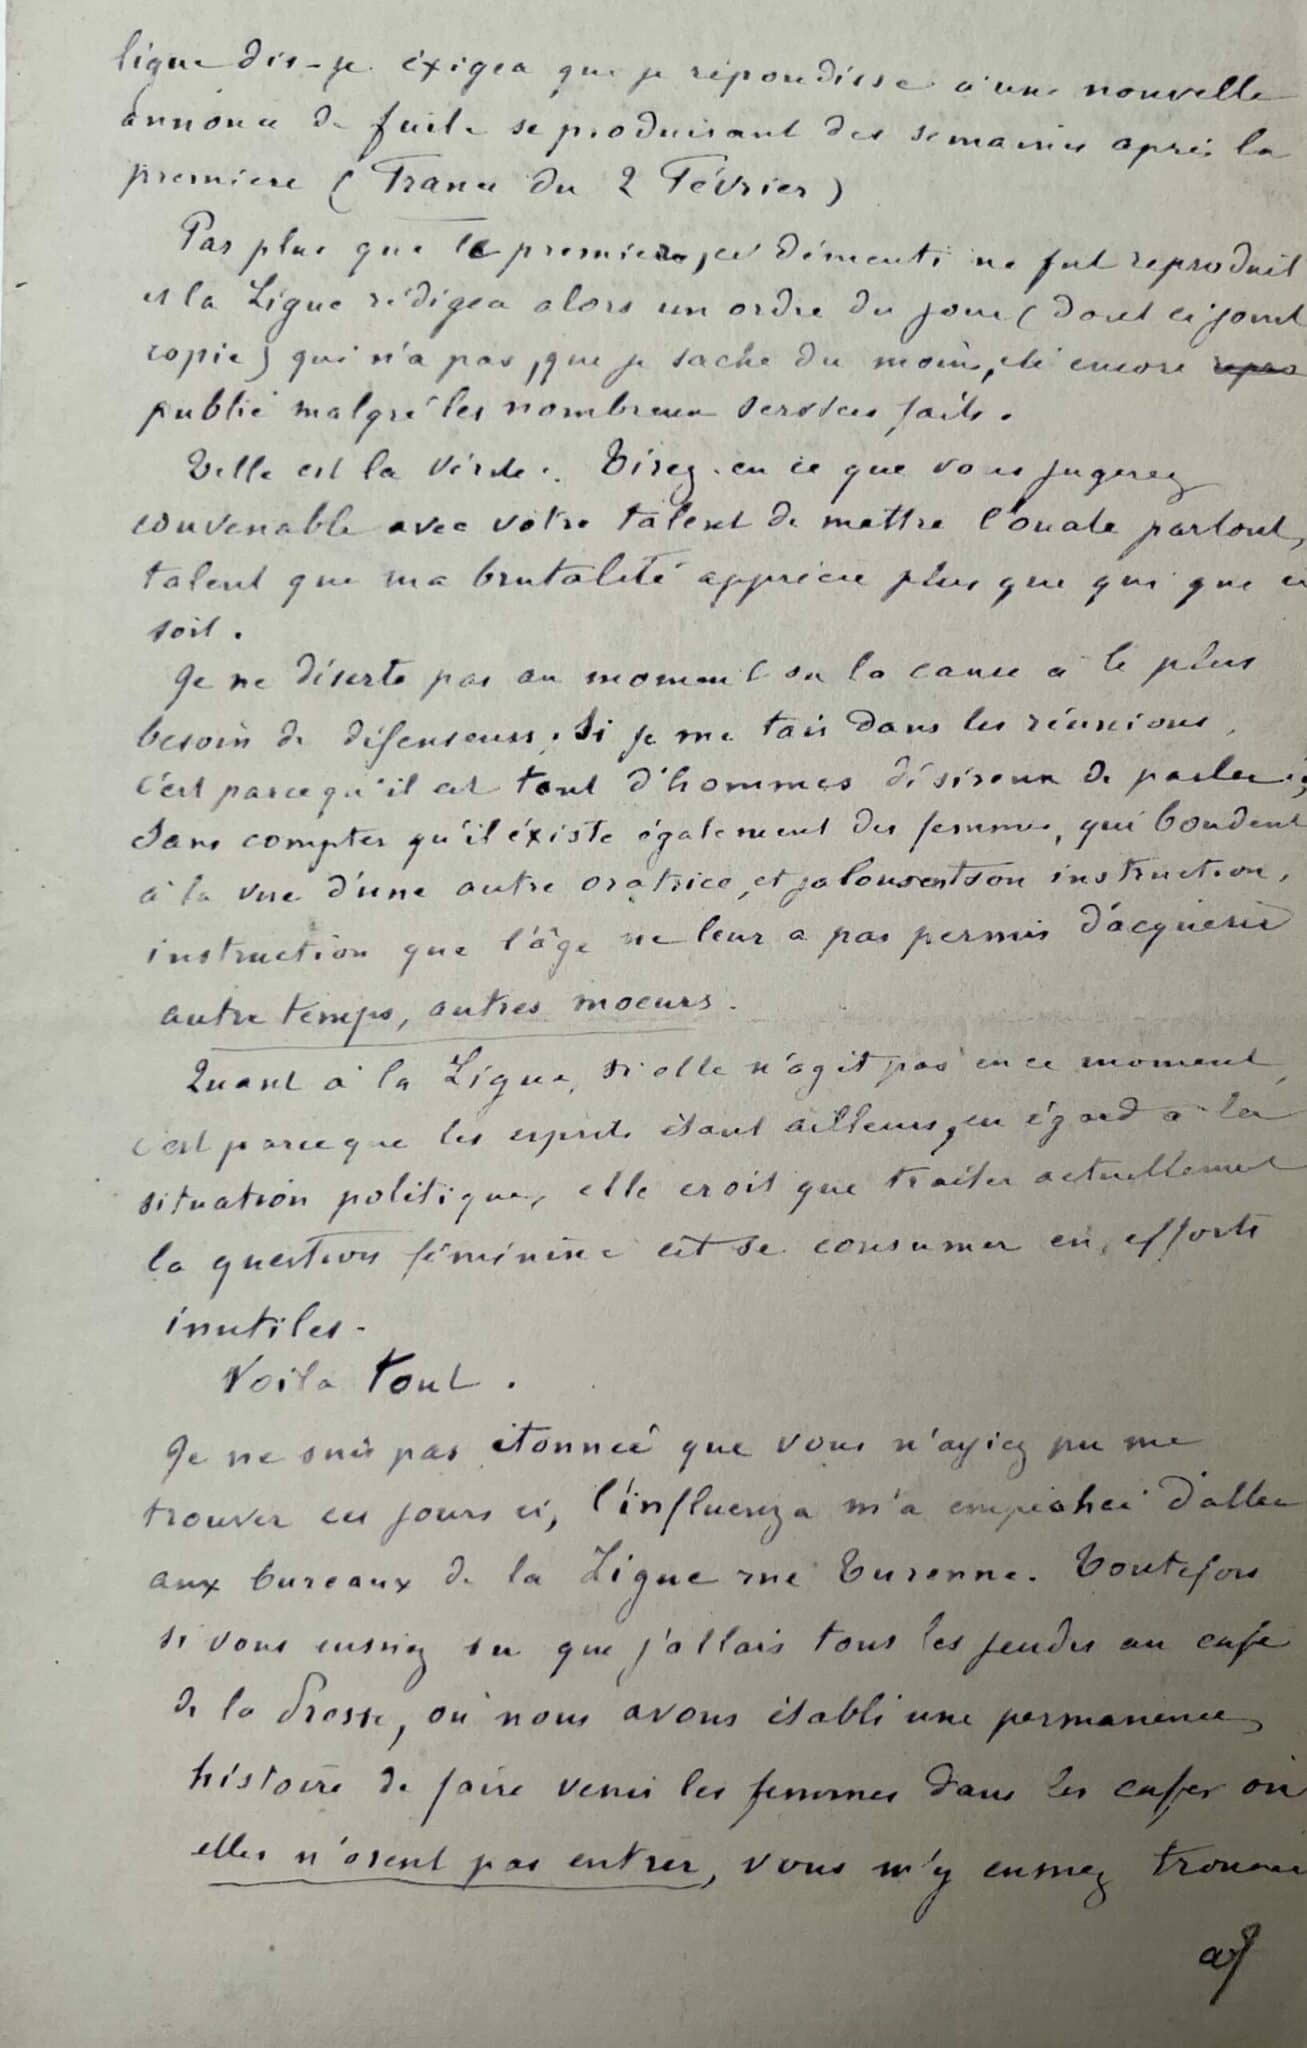 ligue dis-je éxigea que je répondisse à une nouvelle
annonce de fuite se produisant des semaines après la
première (France du 2 Février)
Pas plus que le premier, ce démenti ne fut reproduit
et la Ligue rédigea alors un ordre du jour (dont ci joint
copie) qui n'a pas, que je sache du moins, été encore repro
publié malgré les nombreux services faits.
Telle est la vérité. Tirez en ce que vous jugerez
convenable avec votre talent de mettre l'ouate partout,
talent que ma brutalité apprécie plus que qui que ce
soit.
Je ne déserte pas au moment où la cause a le plus
besoin de défenseurs. Si je me tais dans les réunions,
c'est parcequ'il est tant d'hommes désireux de parler;
sans compter qu'il éxiste également des femmes, qui boudent
à la vue d'une autre oratrice, et jalousent son instruction,
instruction que l'âge ne leur a pas permis d'acquérir
autre temps, autres moeurs.
Quant à la Ligue, si elle n'agit pas en ce moment,
c'est parceque les esprits étant ailleurs, eu égard à la
situation politique, elle croit que traiter actuellement
la question féminine est se consumer en efforts
inutiles.
Voilà tout.
Je ne suis pas étonnée que vous n'ayiez pu me
trouver ces jours ci, l'influenza m'a empêchée d'aller
aux bureaux de la Ligue rue Turenne. Toutefois
si vous eussiez su que j'allais tous les jeudis au café
de la Presse, où nous avons établi une permanence,
histoire de faire venir les femmes dans les cafés où
elles n'osent pas entrer, vous m'y eussiez trouvée